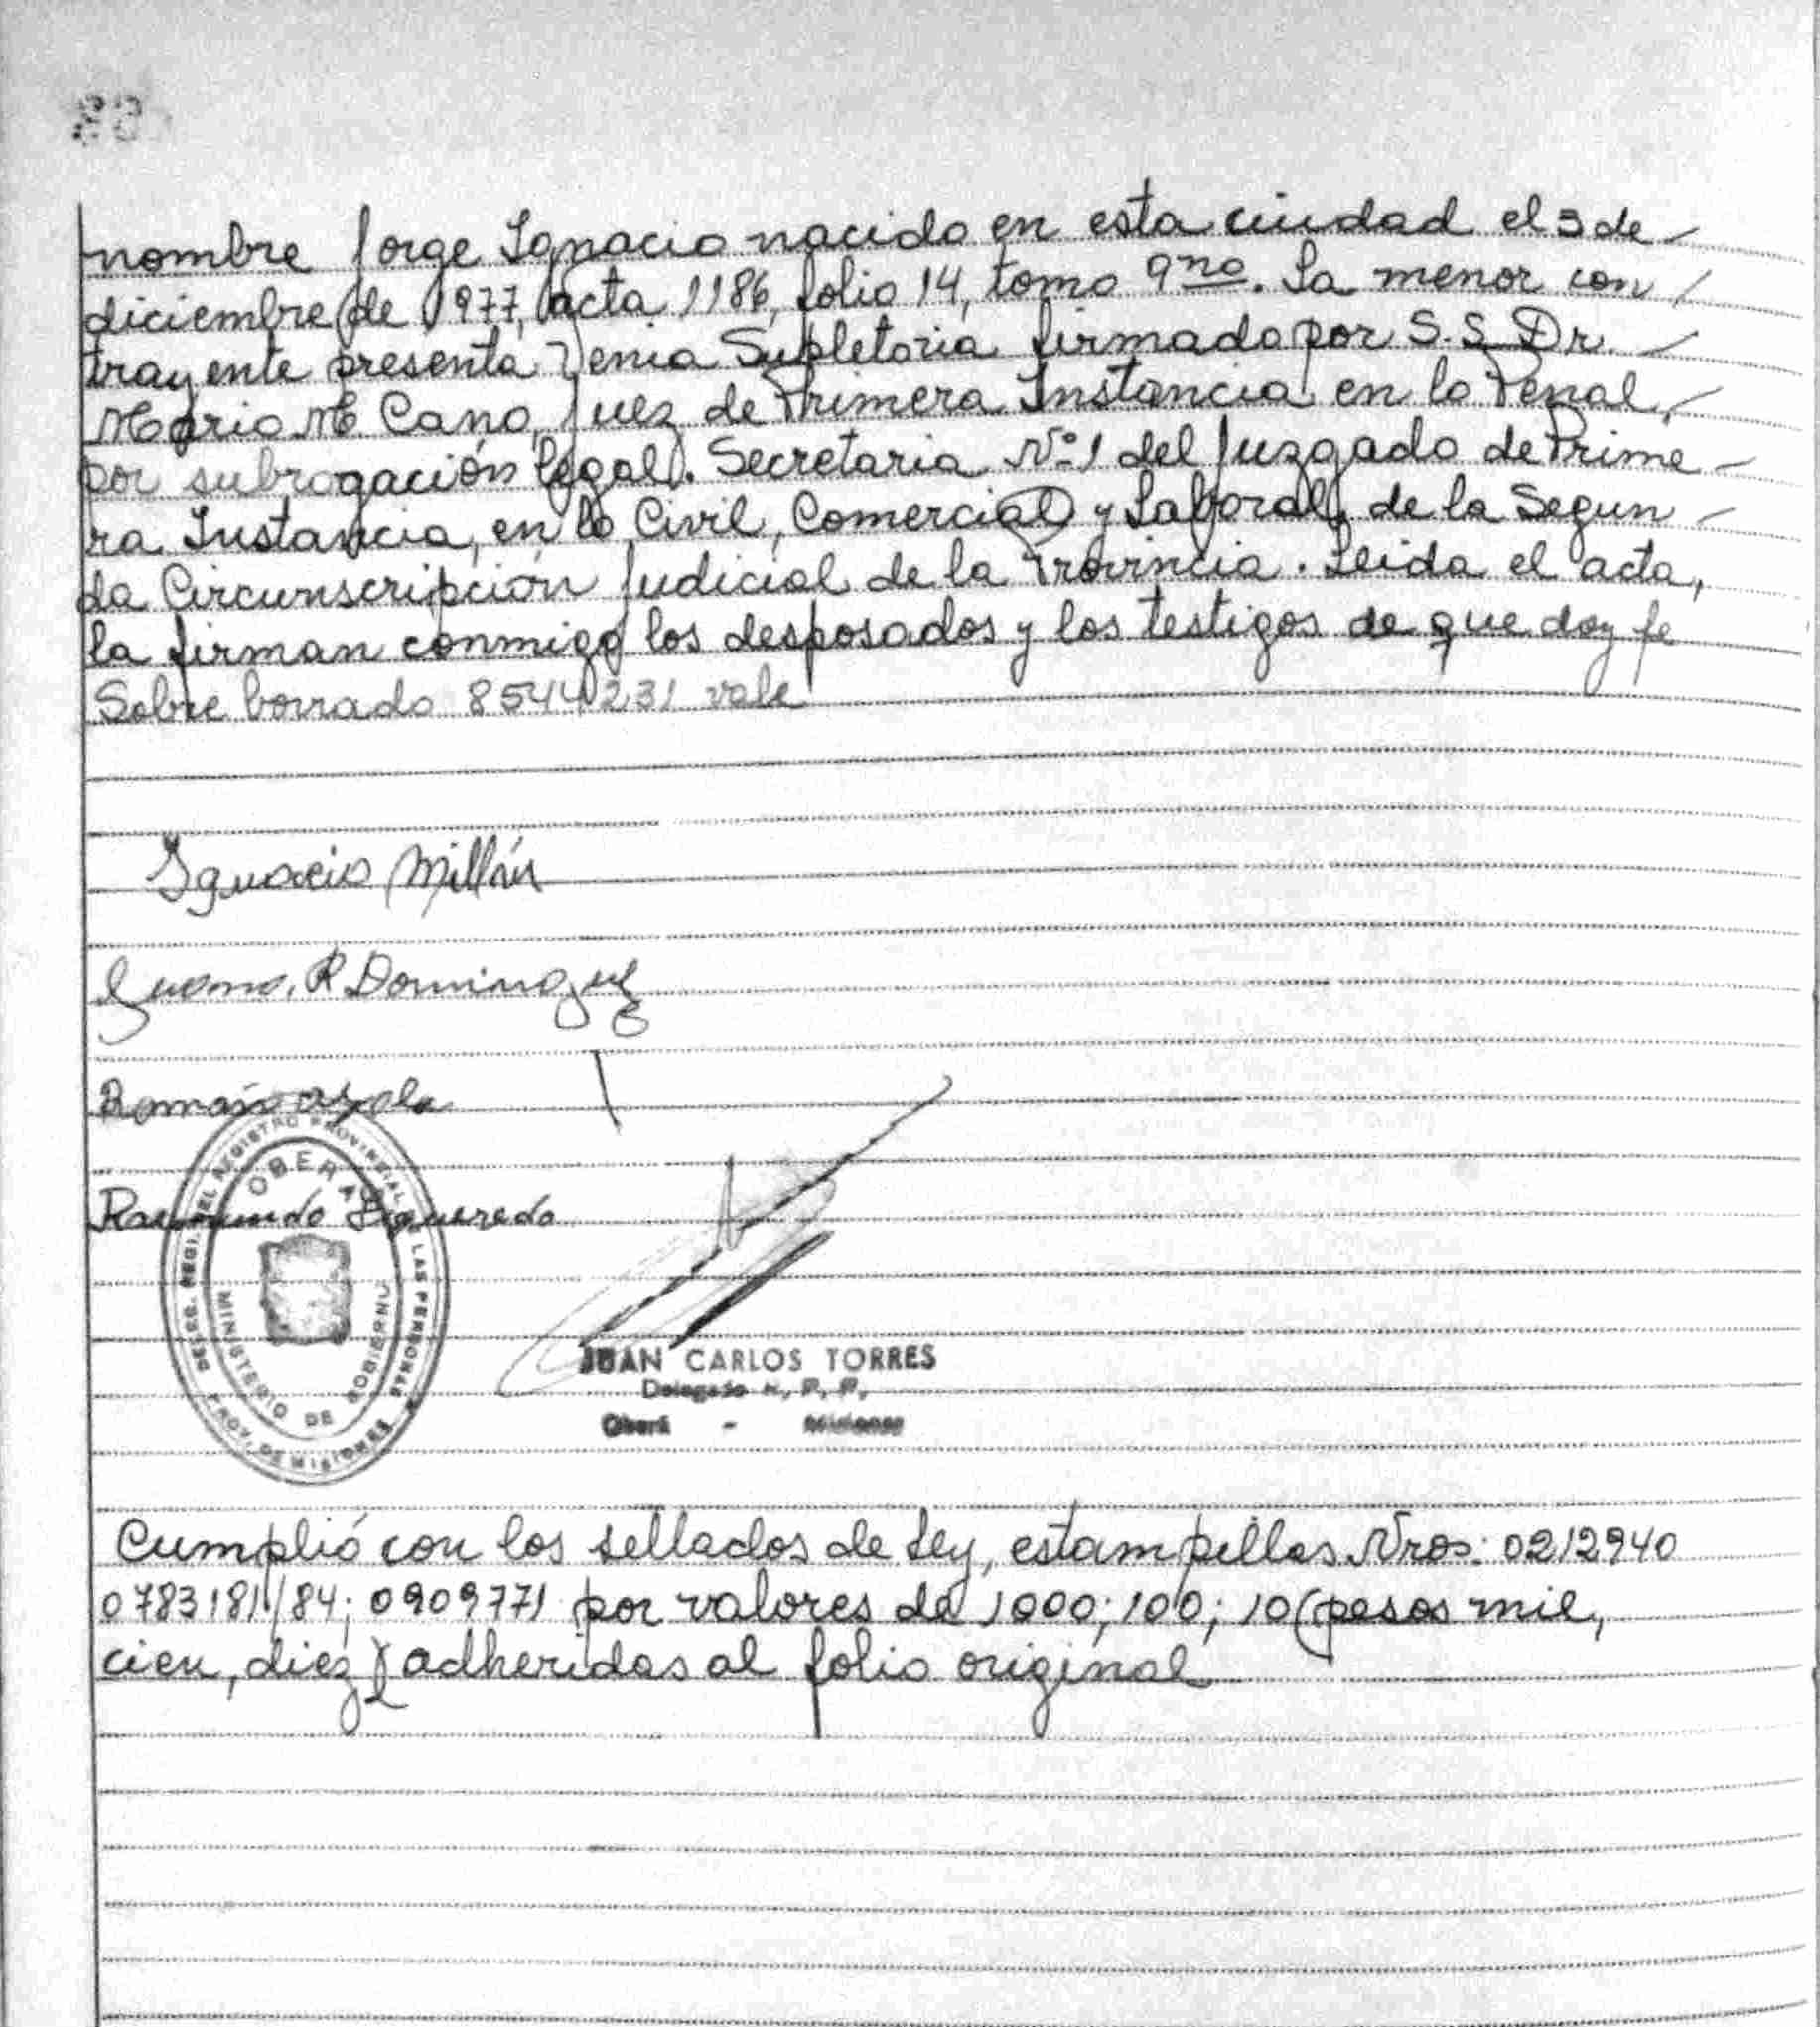 nombre Jorge Ignacio nacido en esta ciudad el 3 de
diciembre de 1977, acta 1186, folio 14, tomo 9no. La menor con
trayente presenta Venia Supletoria firmada por S.S Dr.
Mario M Cano, Juez de Primera Instancia en lo Penal,
por subrogación legal. Secretaria Nº 1 del Juzgado de Prime
ra Instancia, en lo Civil, Comercial y Laboral, de la Segun
da Circunscripción Judicial de la Provincia. Leida el acta,
la firman conmigo los desposados y los testigos de que doy fe
Sobre borrado 8544231 vale
Ignacio Millán
R Dominguez
Román Ayala
Raimundo Figueredo
REGISTRO PROVINCIAL DE LAS PERSONAS
OBERA
MINISTERIO DE GOBIERNO
PROV. DE MISIONES
JUAN CARLOS TORRES
Delegado R. P. P.
Oberá - Misiones
Cumplió con los sellados de Ley, estampillas Nros: 0212940
0783181/84; 0909771 por valores de 1000; 100; 10 (pesos mil,
cien, diez) adheridas al folio original